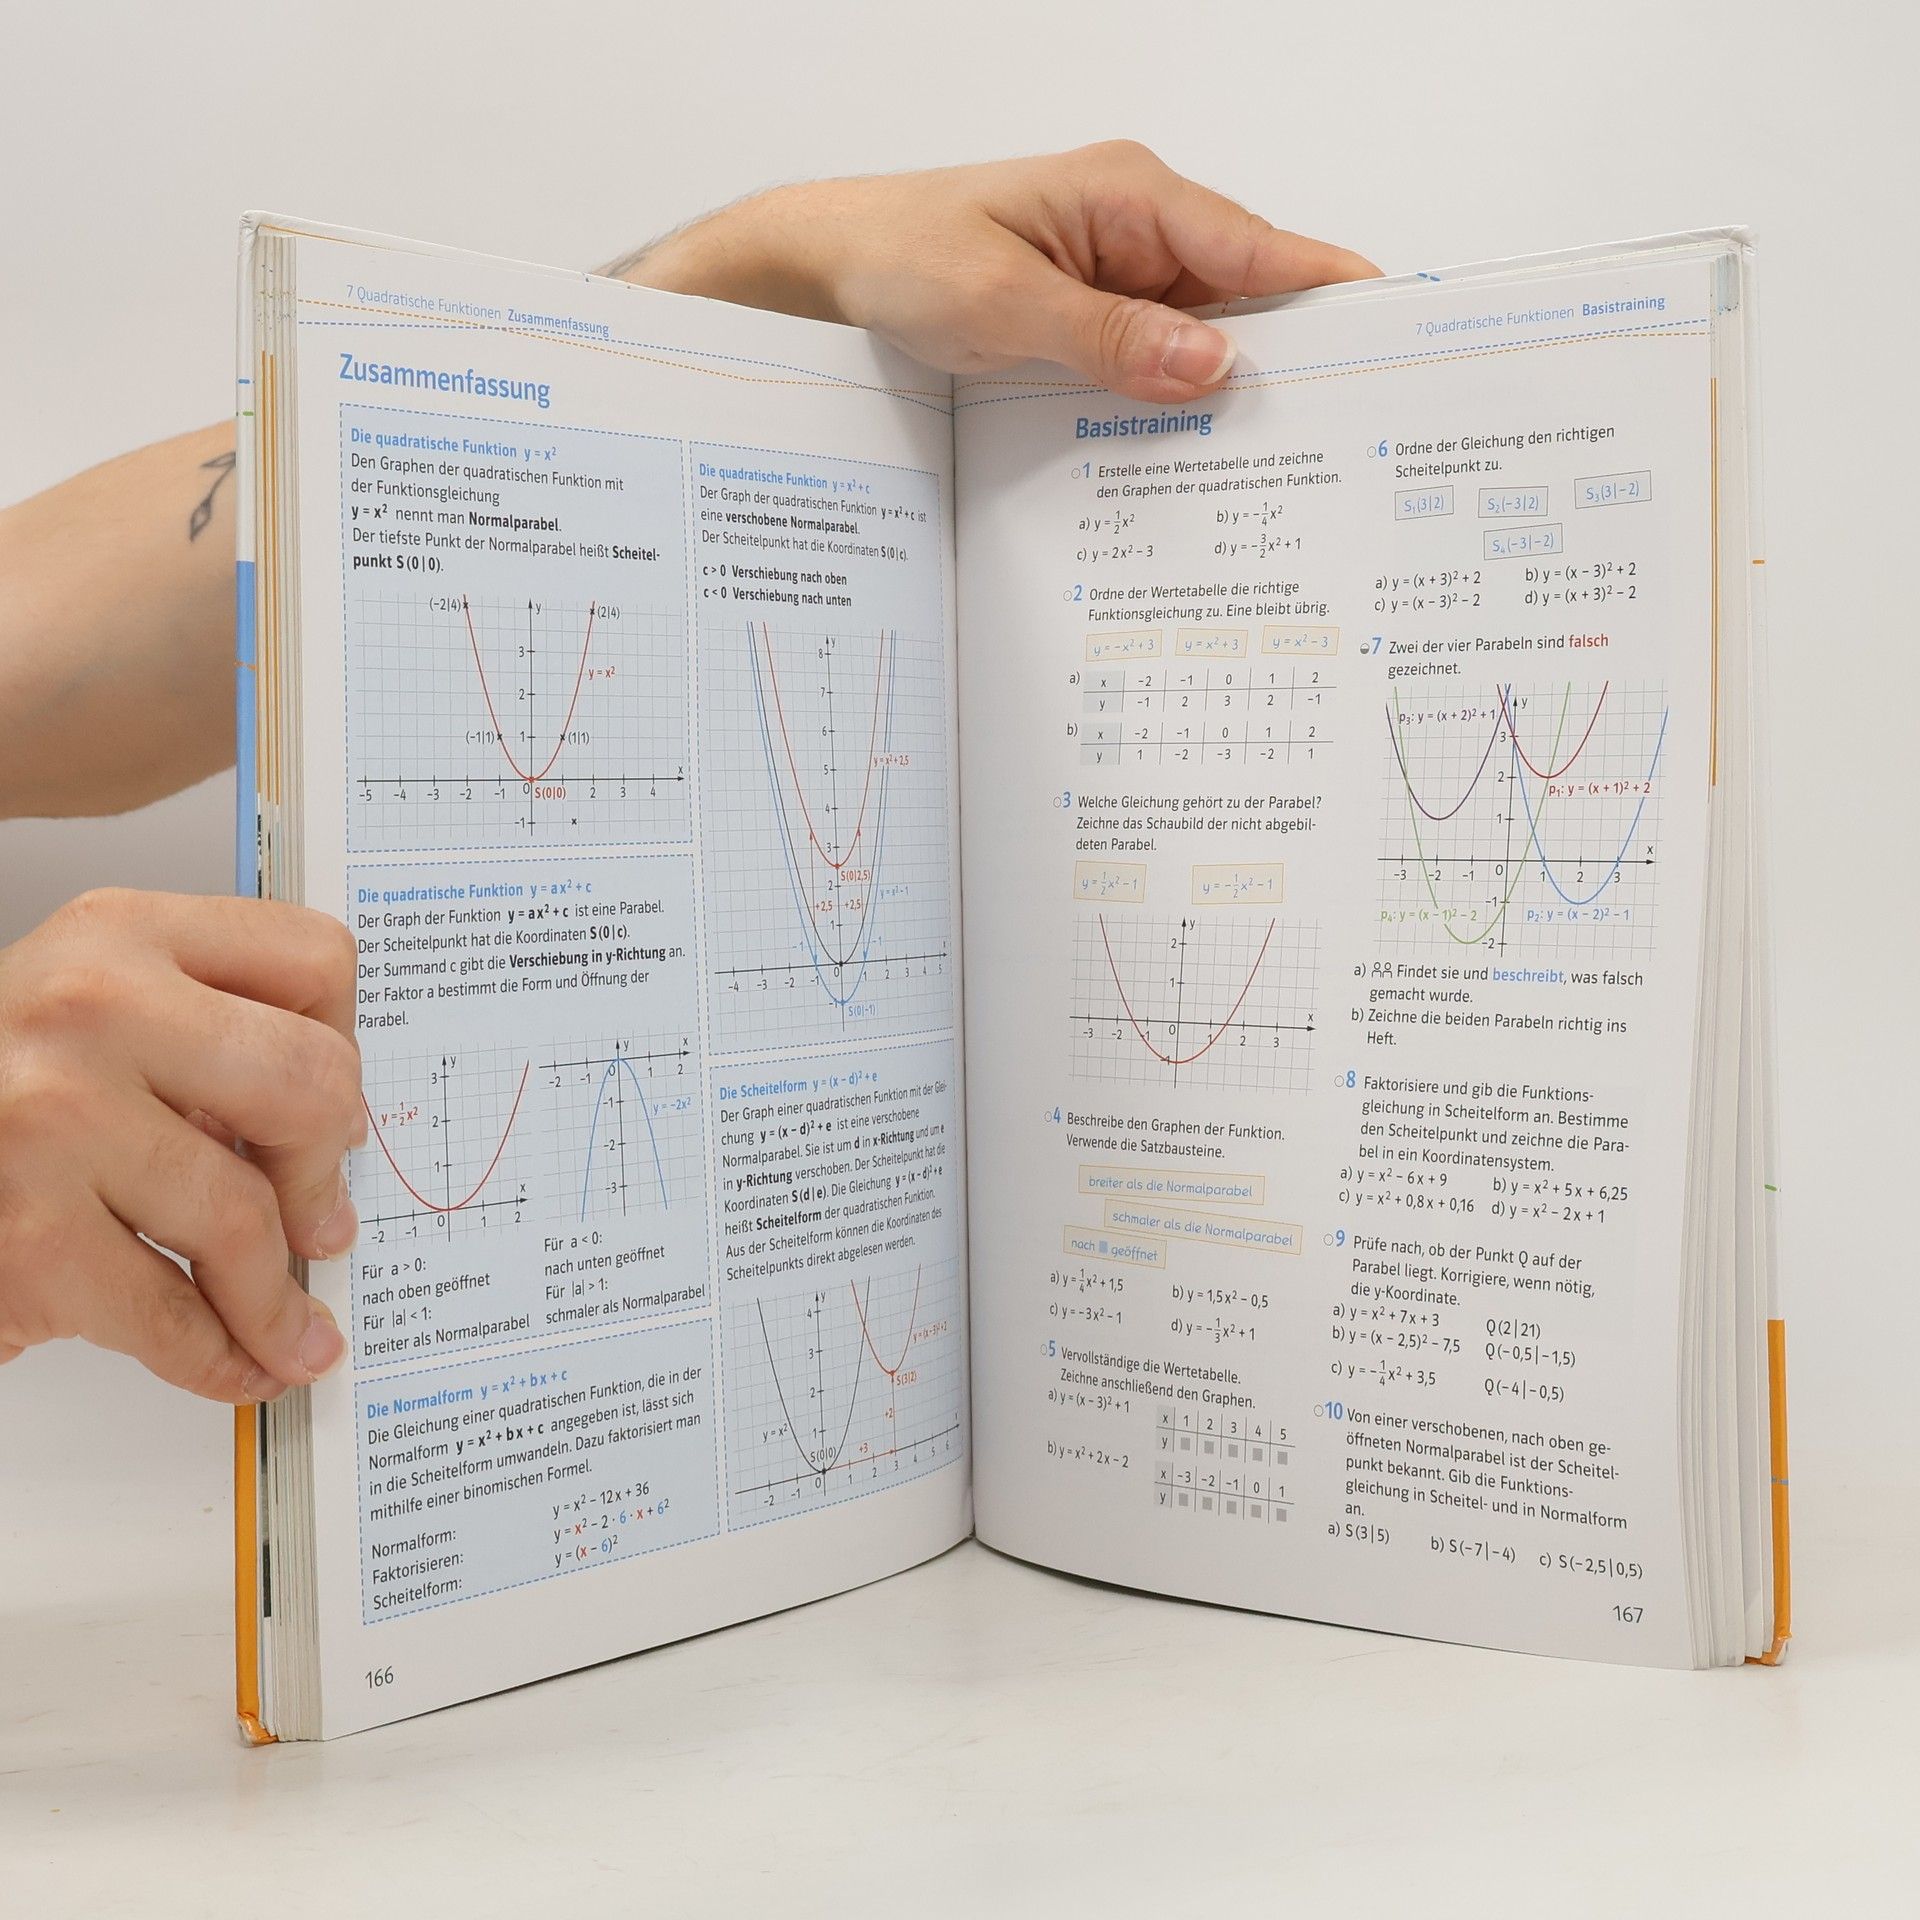 7 Quadratische Funktionen Zusammenfassung
Zusammenfassung
Die quadratische Funktion y = x²
Den Graphen der quadratischen Funktion mit
der Funktionsgleichung
y = x² nennt man Normalparabel.
Der tiefste Punkt der Normalparabel heißt Scheitel-
punkt S(0|0).
(-2|4) y (2|4)
3
y = x²
2
(-1|1) 1 (1|1)
x
-5 -4 -3 -2 -1 0 S(0|0) 2 3 4
-1
Die quadratische Funktion y = ax² + c
Der Graph der Funktion y = ax² + c ist eine Parabel.
Der Scheitelpunkt hat die Koordinaten S(0|c).
Der Summand c gibt die Verschiebung in y-Richtung an.
Der Faktor a bestimmt die Form und Öffnung der
Parabel.
y
3
y = 1/2 x²
2
1
x
-2 -1 0 1 2
y x
-2 -1 0 1 2
-1 y = -2x²
-2
-3
Für a > 0:
nach oben geöffnet
Für |a| < 1:
breiter als Normalparabel
Für a < 0:
nach unten geöffnet
Für |a| > 1:
schmaler als Normalparabel
Die Normalform y = x² + bx + c
Die Gleichung einer quadratischen Funktion, die in der
Normalform y = x² + bx + c angegeben ist, lässt sich
in die Scheitelform umwandeln. Dazu faktorisiert man
mithilfe einer binomischen Formel.
Normalform: y = x² - 12x + 36
Faktorisieren: y = x² - 2 · 6 · x + 6²
Scheitelform: y = (x - 6)²
166
Die quadratische Funktion y = x² + c
Der Graph der quadratischen Funktion y = x² + c ist
eine verschobene Normalparabel.
Der Scheitelpunkt hat die Koordinaten S(0|c).
c > 0 Verschiebung nach oben
c < 0 Verschiebung nach unten
y
8
7
6
y = x² + 2,5
5
4
3
S(0|2,5)
2
y = x² - 1
+2,5 +2,5
1
-1 -1
-4 -3 -2 -1 0 1 2 3 4 5
-1 S(0|-1)
Die Scheitelform y = (x - d)² + e
Der Graph einer quadratischen Funktion mit der Glei-
chung y = (x - d)² + e ist eine verschobene
Normalparabel. Sie ist um d in x-Richtung und um e
in y-Richtung verschoben. Der Scheitelpunkt hat die
Koordinaten S(d|e). Die Gleichung y = (x - d)² + e
heißt Scheitelform der quadratischen Funktion.
Aus der Scheitelform können die Koordinaten des
Scheitelpunkts direkt abgelesen werden.
y
4
y = (x - 3)² + 2
3
S(3|2)
2
+2
y = x² 1
S(0|0) +3
-2 -1 0 1 2 3 4 5 6
7 Quadratische Funktionen Basistraining
Basistraining
1 Erstelle eine Wertetabelle und zeichne
den Graphen der quadratischen Funktion.
a) y = 1/2 x² b) y = -1/4 x²
c) y = 2x² - 3 d) y = -3/2 x² + 1
2 Ordne der Wertetabelle die richtige
Funktionsgleichung zu. Eine bleibt übrig.
y = -x² + 3 y = x² + 3 y = x² - 3
a) x -2 -1 0 1 2
y -1 2 3 2 -1
b) x -2 -1 0 1 2
y 1 -2 -3 -2 1
3 Welche Gleichung gehört zu der Parabel?
Zeichne das Schaubild der nicht abgebil-
deten Parabel.
y = 1/2 x² - 1 y = -1/2 x² - 1
y
2
1
x
-3 -2 -1 0 1 2 3
-1
4 Beschreibe den Graphen der Funktion.
Verwende die Satzbausteine.
breiter als die Normalparabel
schmaler als die Normalparabel
nach ■ geöffnet
a) y = 1/4 x² + 1,5 b) y = 1,5x² - 0,5
c) y = -3x² - 1 d) y = -1/3 x² + 1
5 Vervollständige die Wertetabelle.
Zeichne anschließend den Graphen.
a) y = (x - 3)² + 1
x 1 2 3 4 5
y ■ ■ ■ ■ ■
b) y = x² + 2x - 2
x -3 -2 -1 0 1
y ■ ■ ■ ■ ■
6 Ordne der Gleichung den richtigen
Scheitelpunkt zu.
S₁(3|2) S₂(-3|2) S₃(3|-2)
S₄(-3|-2)
a) y = (x + 3)² + 2 b) y = (x - 3)² + 2
c) y = (x - 3)² - 2 d) y = (x + 3)² - 2
7 Zwei der vier Parabeln sind falsch
gezeichnet.
p₃: y = (x + 2)² + 1 y
3
2
p₁: y = (x + 1)² + 2
1
x
-3 -2 -1 0 1 2 3
-1
p₄: y = (x - 1)² - 2 p₂: y = (x - 2)² - 1
-2
a) Findet sie und beschreibt, was falsch
gemacht wurde.
b) Zeichne die beiden Parabeln richtig ins
Heft.
8 Faktorisiere und gib die Funktions-
gleichung in Scheitelform an. Bestimme
den Scheitelpunkt und zeichne die Para-
bel in ein Koordinatensystem.
a) y = x² - 6x + 9 b) y = x² + 5x + 6,25
c) y = x² + 0,8x + 0,16 d) y = x² - 2x + 1
9 Prüfe nach, ob der Punkt Q auf der
Parabel liegt. Korrigiere, wenn nötig,
die y-Koordinate.
a) y = x² + 7x + 3 Q(2|21)
b) y = (x - 2,5)² - 7,5 Q(-0,5|-1,5)
c) y = -1/4 x² + 3,5 Q(-4|-0,5)
10 Von einer verschobenen, nach oben ge-
öffneten Normalparabel ist der Scheitel-
punkt bekannt. Gib die Funktions-
gleichung in Scheitel- und in Normalform
an.
a) S(3|5) b) S(-7|-4) c) S(-2,5|0,5)
167